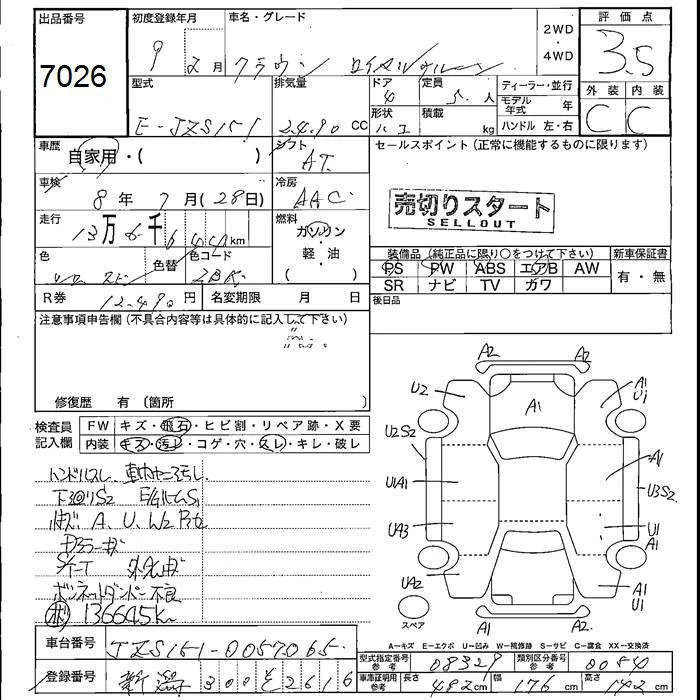 出品番号 初度登録年月 車名・グレード 評価点
7026 9 2月 クラウン ロイヤルサルーン 2WD・4WD 3.5
外装 内装
C C
型式 排気量 ドア 定員 ディーラー・並行
E-JZS151 2490 CC 4 5人 モデル年式 年
形状 積載 ハンドル 左・右
ハコ kg
車歴 シフト セールスポイント(正常に機能するものに限ります)
自家用・( ) AT
車検 冷房
8年 7月(28日) AAC
売切りスタート
SELLOUT
走行 燃料
13万6千6 km ガソリン・軽・油 ( )
色 色替 色コード
装備品(純正品に限り○をつけて下さい) 新車保証書
PS PW ABS エアB AW 有・無
SR ナビ TV ガワ
R券 12490円 名変期限 月 日
後日品
注意事項申告欄(不具合内容等は具体的に記入して下さい)
修復歴 有 〔箇所
検査員記入欄 FW キズ・飛石・ヒビ割・リペア跡・X要
内装 キズ・汚レ・コゲ・穴・スレ・キレ・破レ
ハンドルスレ 車内ヤニ汚れ
下廻りS2 E/GルームS1
A、U、W2
ボンネットダンパー不良
136645K
A2 A2
U2 A1 A1 U1
U2S2 A1
U1A1 U3S2
UA3 U1
A1
UA2 A1 U1
A1 A2
スペア
A=キズ E=エクボ U=凹み W=補修跡 S=サビ C=腐食 XX=交換済
車台番号 JZS151-0057065
型式指定番号 参考 08329 類別区分番号 参考 0040
登録番号 新潟 300 そ 2616
車庫証明用 参考 長さ 482cm 幅 176cm 高さ 142cm